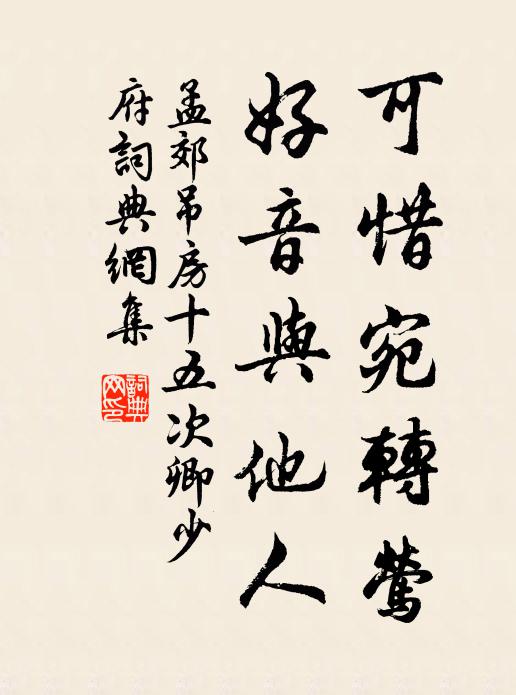 可惜宛轉鶯
好音與他人
孟郊吊房十五次卿少
府詞典網集
詞典
网印